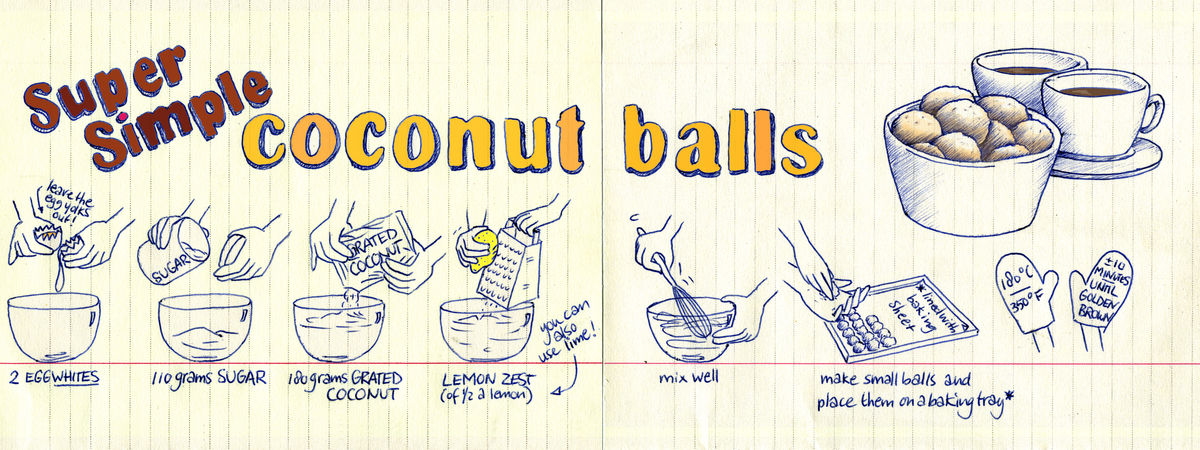 Super
Simple
coconut balls
leave the
egg yolks
out!
2 EGGWHITES
SUGAR
110 grams SUGAR
GRATED
COCONUT
180 grams GRATED
COCONUT
LEMON ZEST
(of 1/2 a lemon)
you can
also
use lime!
mix well
*lined with
baking
sheet
make small balls and
place them on a baking tray*
180°C
350°F
±10
MINUTES
UNTIL
GOLDEN
BROWN